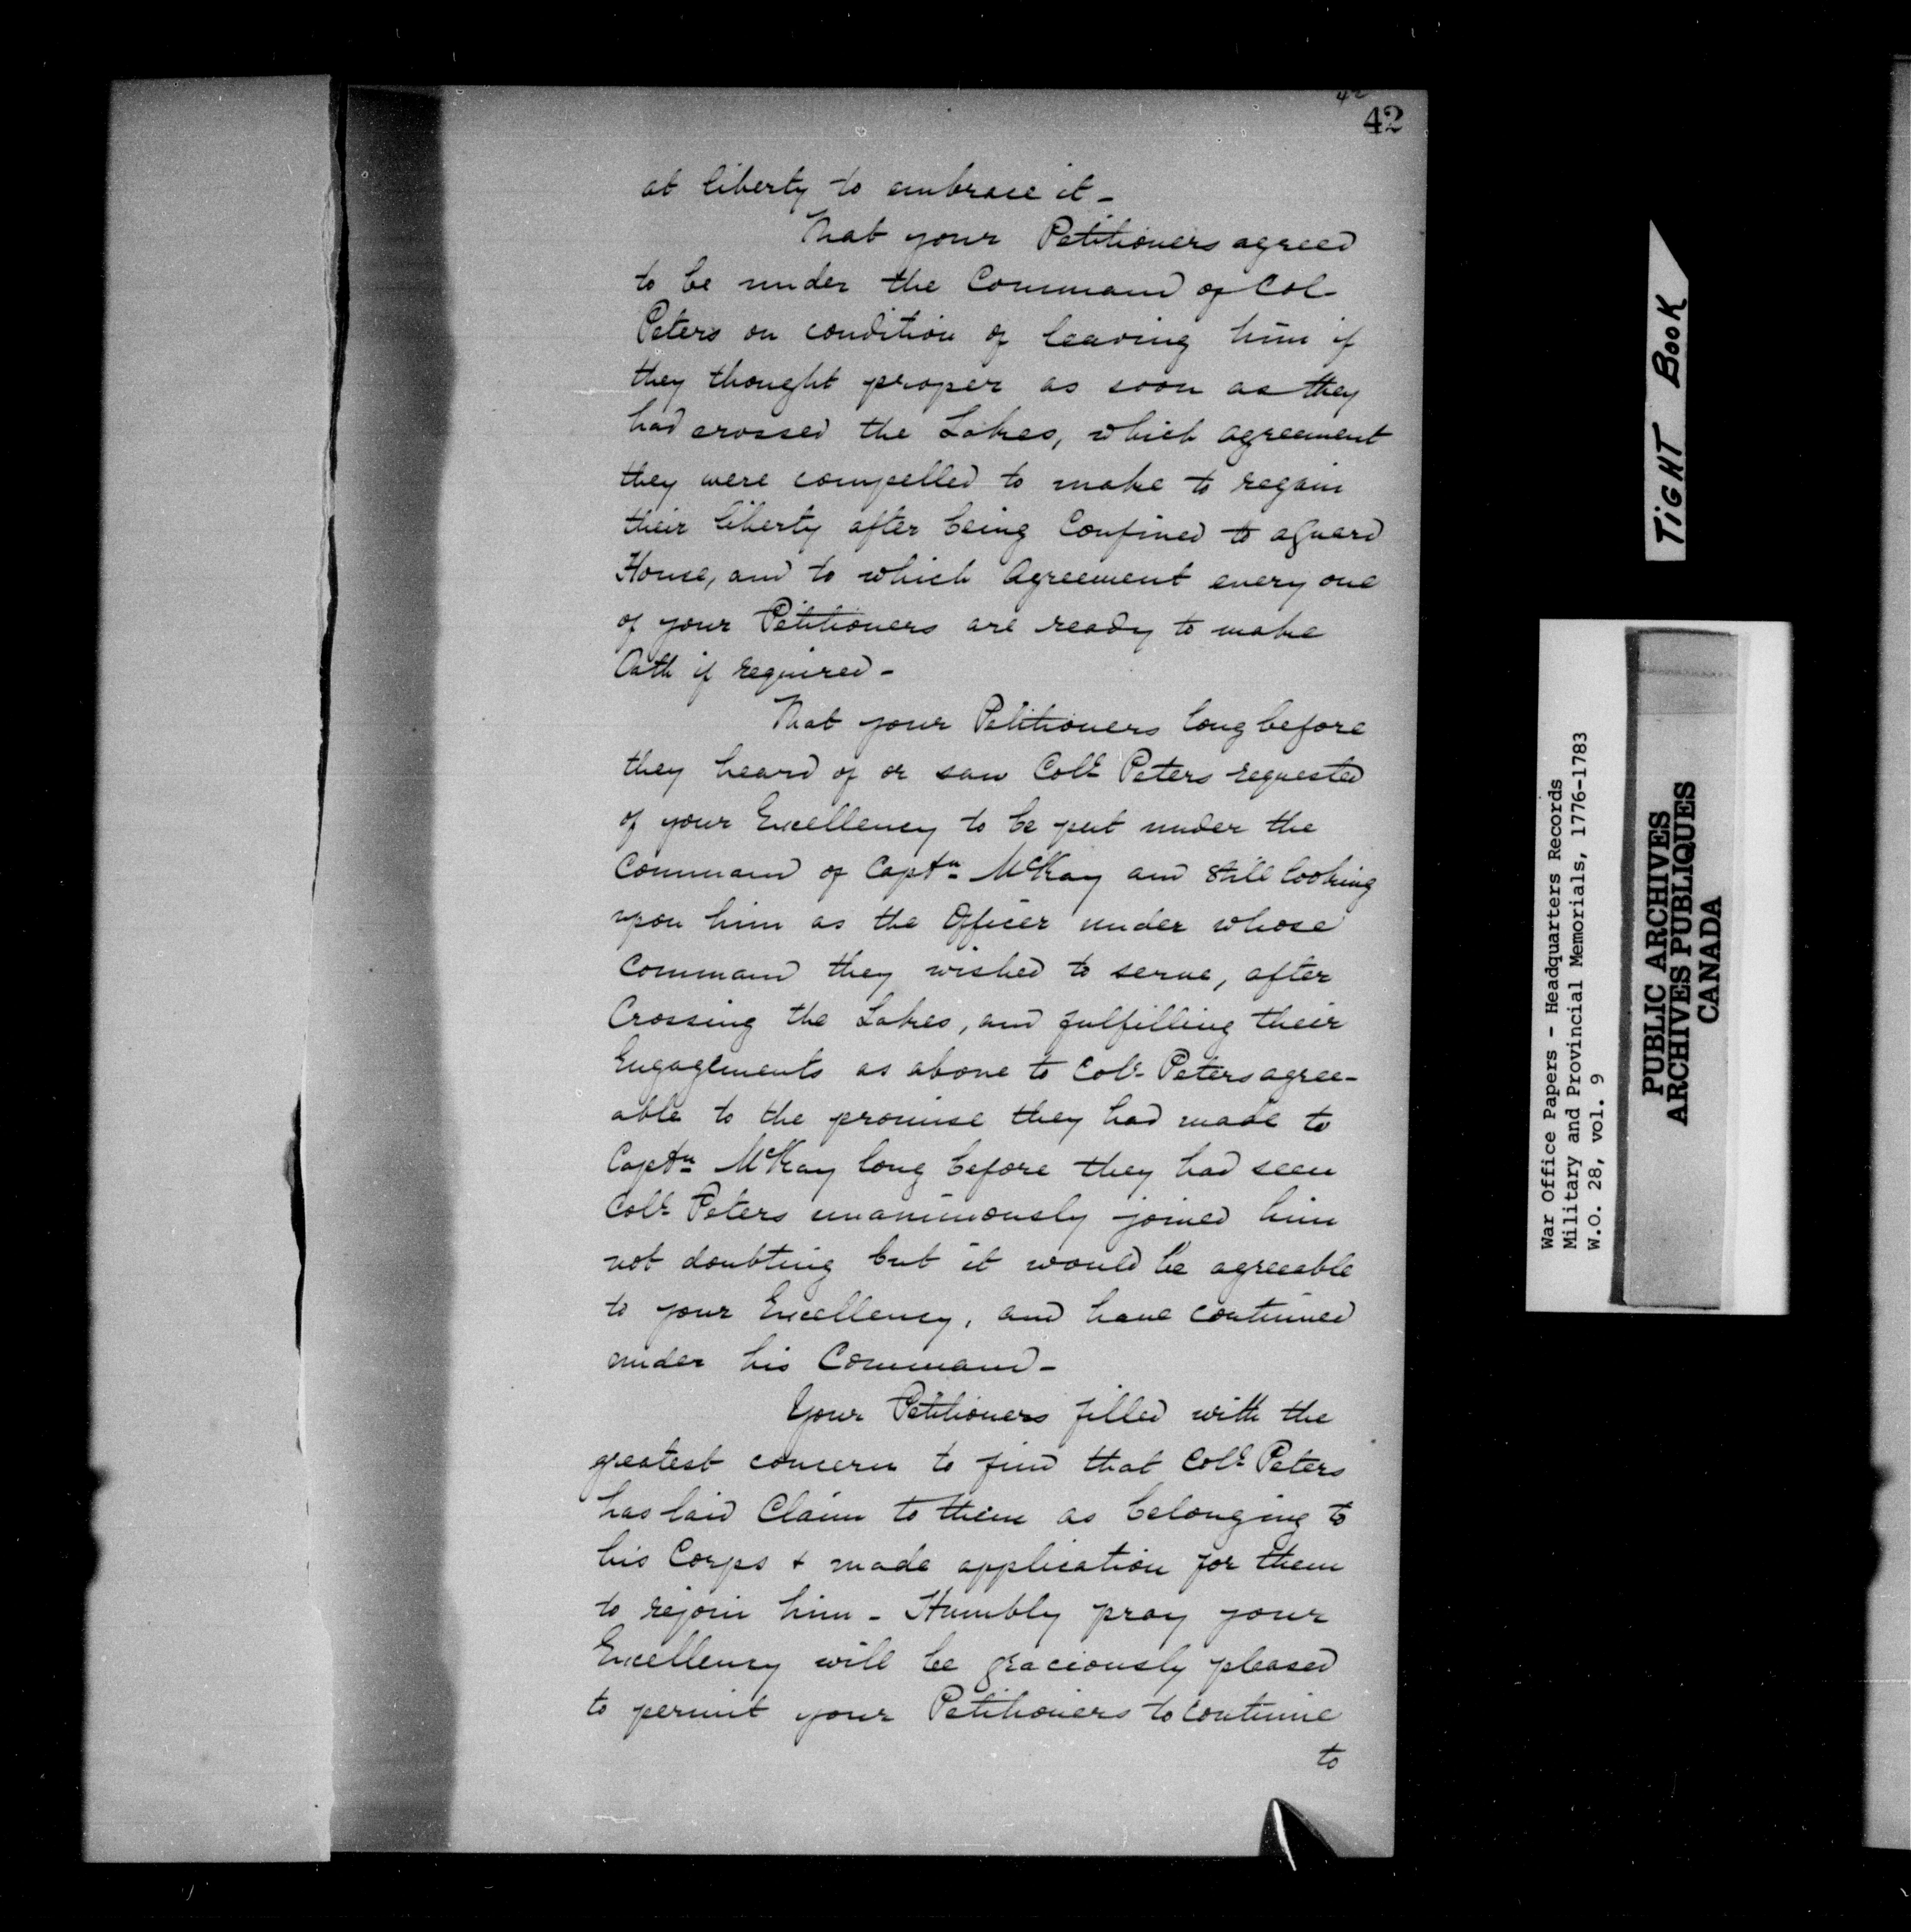 42
42
at liberty to embrace it -
That your Petitioners agreed
to be under the Command of Col-
Peters on condition of leaving him if
they thought proper as soon as they
had crossed the Lakes, which agreement
they were compelled to make to regain
their liberty after being Confined to a Guard
House, and to which Agreement every one
of your Petitioners are ready to make
Oath if required -
That your Petitioners long before
they heard of or saw Coll. Peters requested
of your Excellency to be put under the
Command of Captn McKay and still looking
upon him as the Officer under whose
Command they wished to serve, after
Crossing the Lakes, and fulfilling their
Engagements as above to Col. Peters agree-
able to the promise they had made to
Captn McKay long before they had seen
Coll. Peters unanimously joined him
not doubting but it would be agreeable
to your Excellency, and have continued
under his Command -
Your Petitioners filled with the
greatest concern to find that Coll. Peters
has laid Claim to them as belonging to
his Corps + made application for them
to rejoin him - Humbly pray your
Excellency will be graciously pleased
to permit your Petitioners to continue
to
TIGHT BOOK
War Office Papers - Headquarters Records
Military and Provincial Memorials, 1776-1783
W.O. 28, vol. 9
PUBLIC ARCHIVES
ARCHIVES PUBLIQUES
CANADA